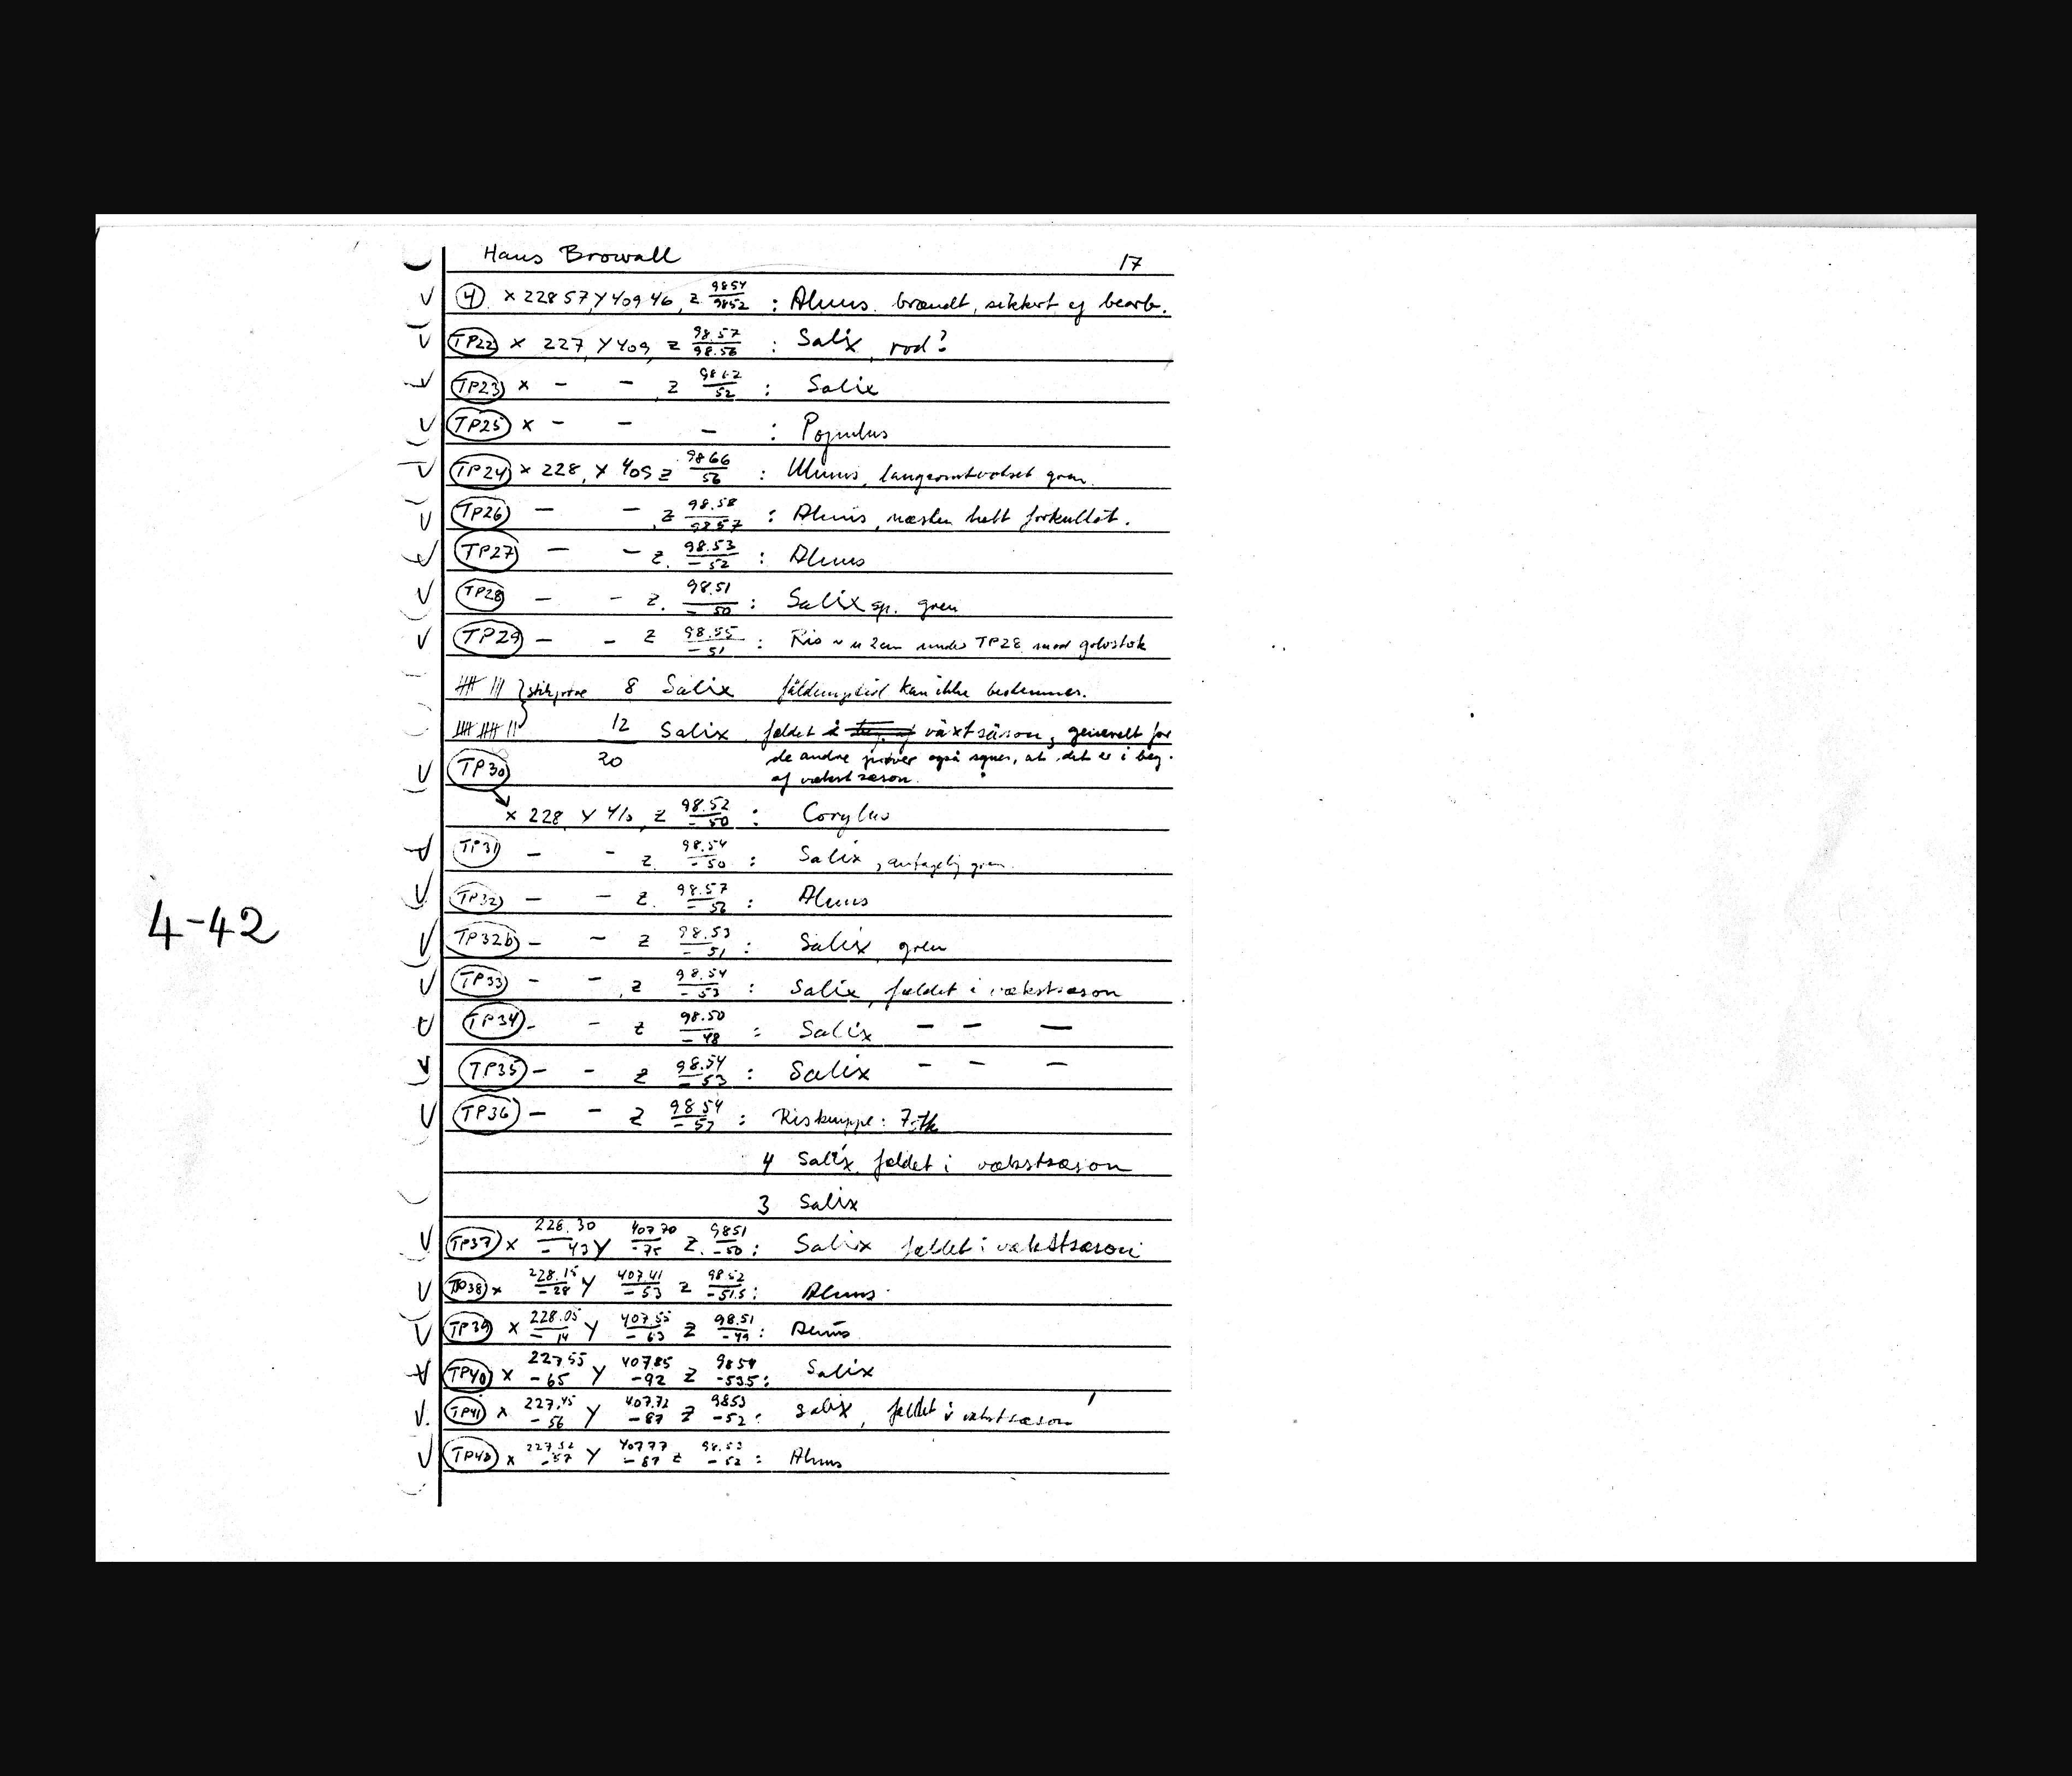 Hans Browall 17
4 x 228 57, Y 409 46, z 98 54 / 98 52 : Alnus. brændt, sikkert ej bearb.
TP22 x 227, Y 409, z 98.57 / 98.56 : Salix, rod?
TP23 x - - , z / 52 : Salix
TP25 x - - - : Populus
TP24 x 228, Y 409 z 98 66 / 56 : Ulmus, gren.
TP26 - - , z 98.58 / 98 57 : Alnus, næsten helt forkullet.
TP27 - - z. 98.53 / - 52 : Alnus
TP28 - - z. 98.51 / - 50 : Salix sp. gren
TP29 - - z 98.55 / - 51 : Ris 2cm under TP28 mod golvstok
8 Salix kan ikke bestemmes.
12 Salix, fældet i växtsäson, generelt for
TP30 20 de andre prøver også synes, at det er i beg.
af vækstsæson.
x 228, Y 410, z 98.52 / - 50 : Corylus
TP31 - - z. 98.54 / - 50 : Salix, antagelig gren.
TP32 - - z. 98.57 / - 56 : Alnus
TP32b - - z 98.53 / - 51 : Salix, gren
TP33 - - , z 98.54 / - 53 : Salix, fældet i vækstsæson
TP34 - - z 98.50 / - 48 : Salix - - -
TP35 - - z 98.54 / - 53 : Salix - - -
TP36 - - z 98 54 / : Risknippe: 7 stk
4 Salix fældet i vækstsæson
3 Salix
TP37 x 228.30 / - 43 Y 407 70 / -75 z. 98 51 / -50 : Salix fældet i vækstsæson
TP38 x 228.15 / - 28 Y 407.41 / - 53 z 98 52 / -51.5 : Alnus
TP39 x 228.05 / - 14 Y 407.55 / - 63 z 98.51 / -49 : Alnus
TP40 x 227 55 / -65 Y 407 85 / -92 z 98 54 / -53.5 : Salix
TP41 x 227.45 / - 56 Y 407.72 / -87 z 98 53 / -52 : Salix, fældet i vækstsæson
x Y 407 77 / - 87 z / - 52 : Alnus
4-42